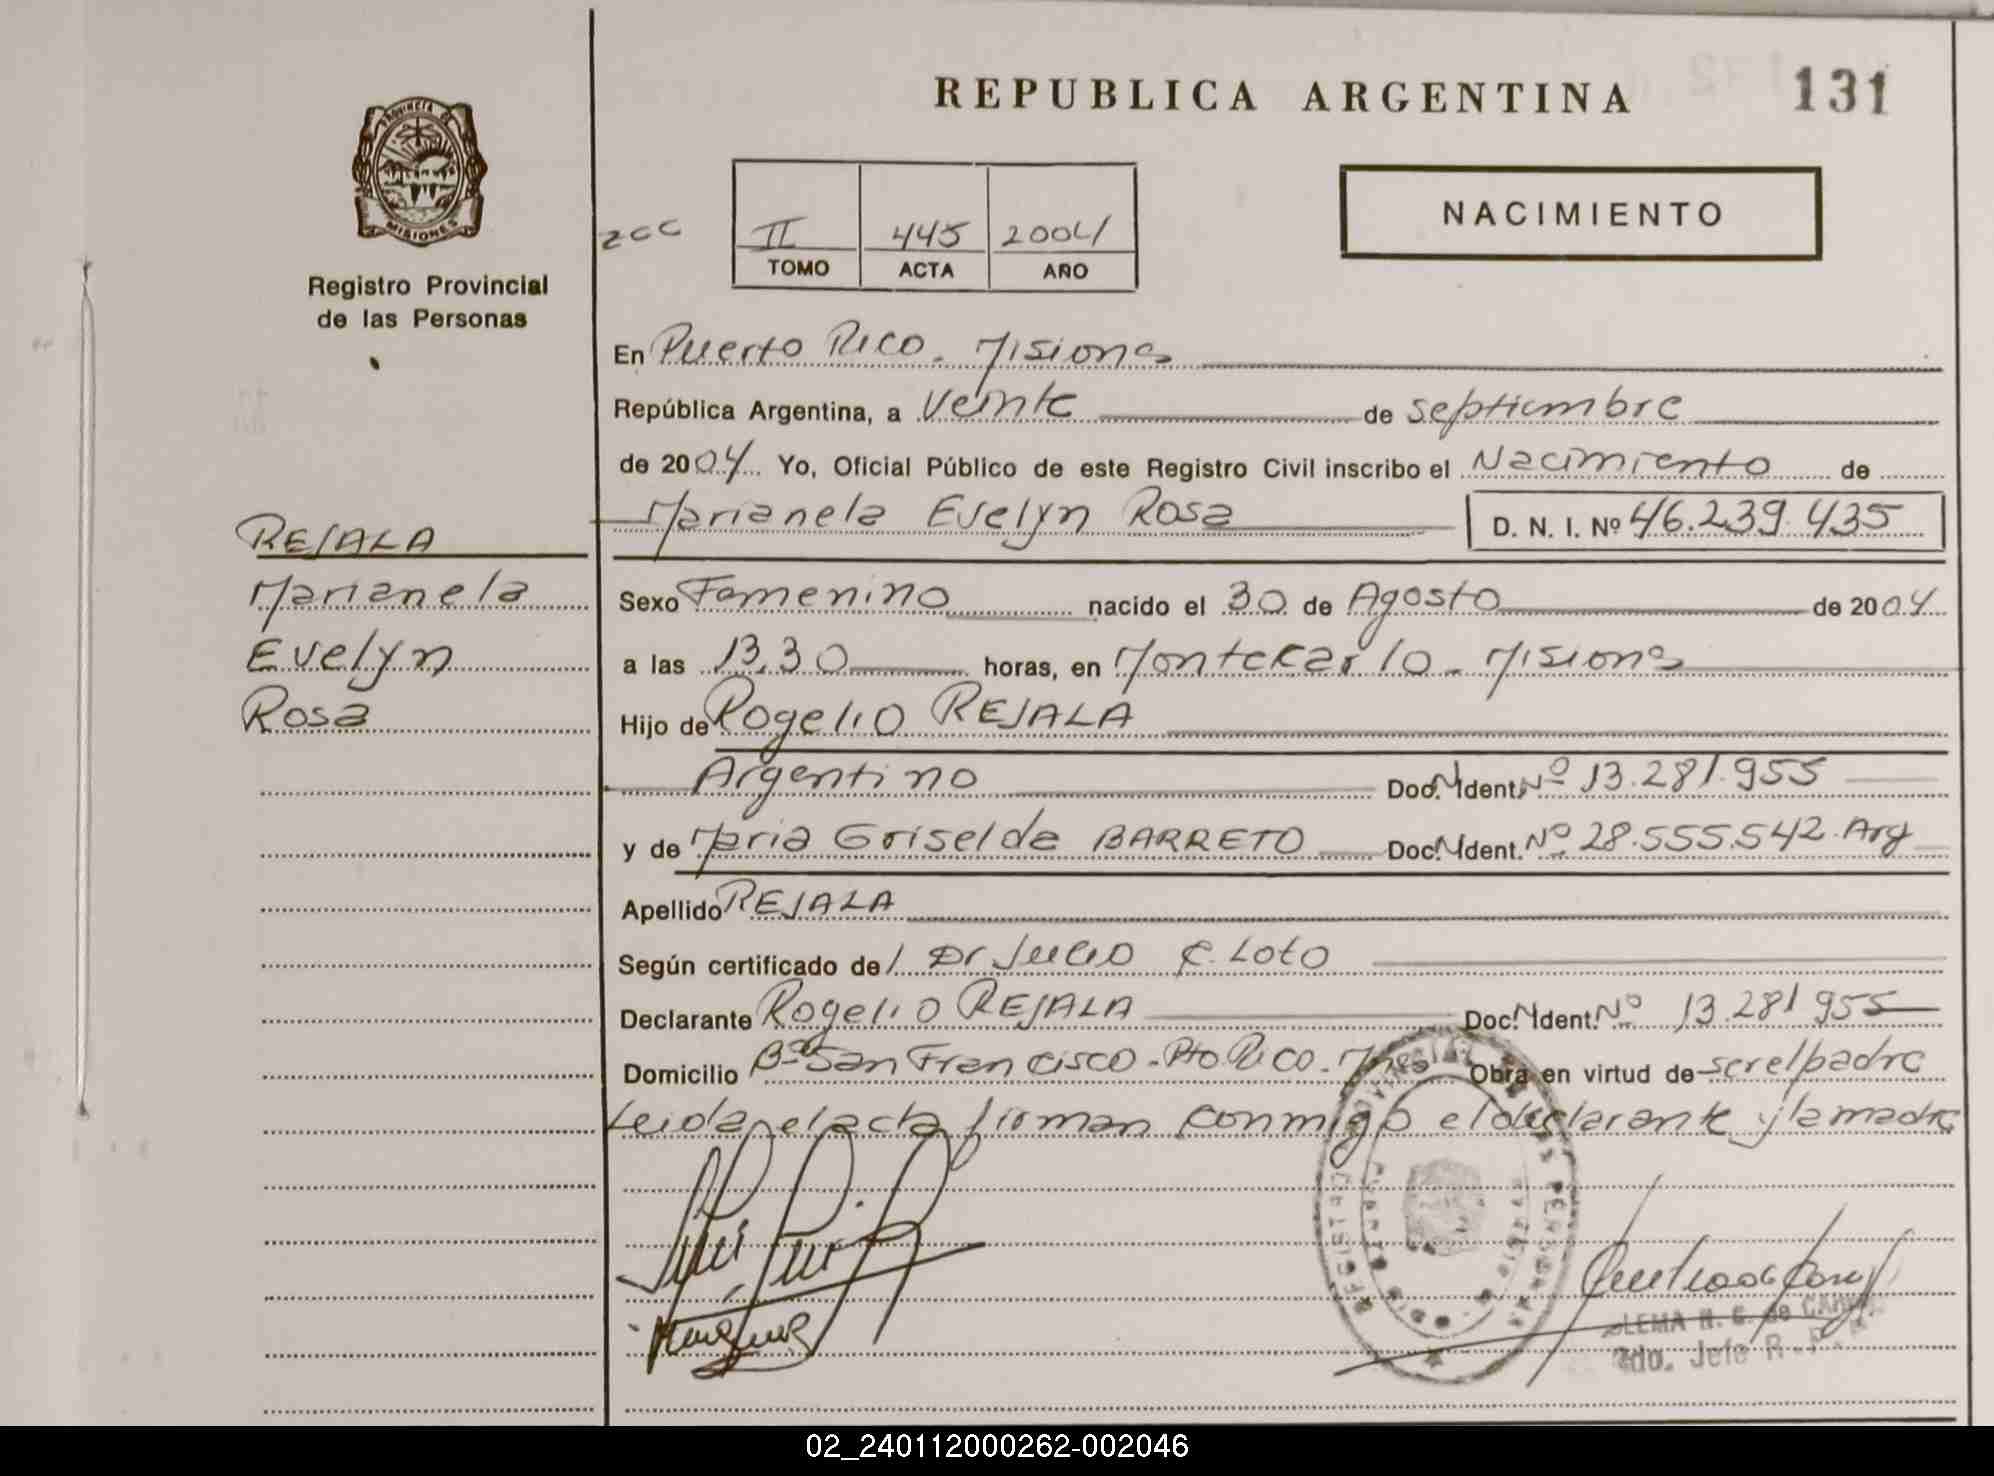 REPUBLICA ARGENTINA
131
PROVINCIA DE
MISIONES
Registro Provincial
de las Personas
II 445 2004
TOMO ACTA AÑO
NACIMIENTO
En Puerto Rico. Misiones
República Argentina, a veinte de septiembre
de 2004 Yo, Oficial Público de este Registro Civil inscribo el Nacimiento de
Marianela Evelyn Rosa D. N. I. Nº 46.239.435
REJALA
Marianela
Evelyn
Rosa
Sexo Femenino nacido el 30 de Agosto de 2004
a las 13.30 horas, en Montekarlo - Misiones
Hijo de Rogelio REJALA
Argentino Doc. N Ident. Nº 13.281.955
y de Maria Griselda BARRETO Doc. N Ident. Nº 28.555.542. Arg
Apellido REJALA
Según certificado de / Dr Julio C. Loto
Declarante Rogelio REJALA Doc. N Ident. Nº 13.281.955
Domicilio Bº San Francisco - Pto Rico. Mnes Obra en virtud de ser el padre
Leida el acta firman conmigo el declarante y la madre
2do. Jefe R.P.
02_240112000262-002046